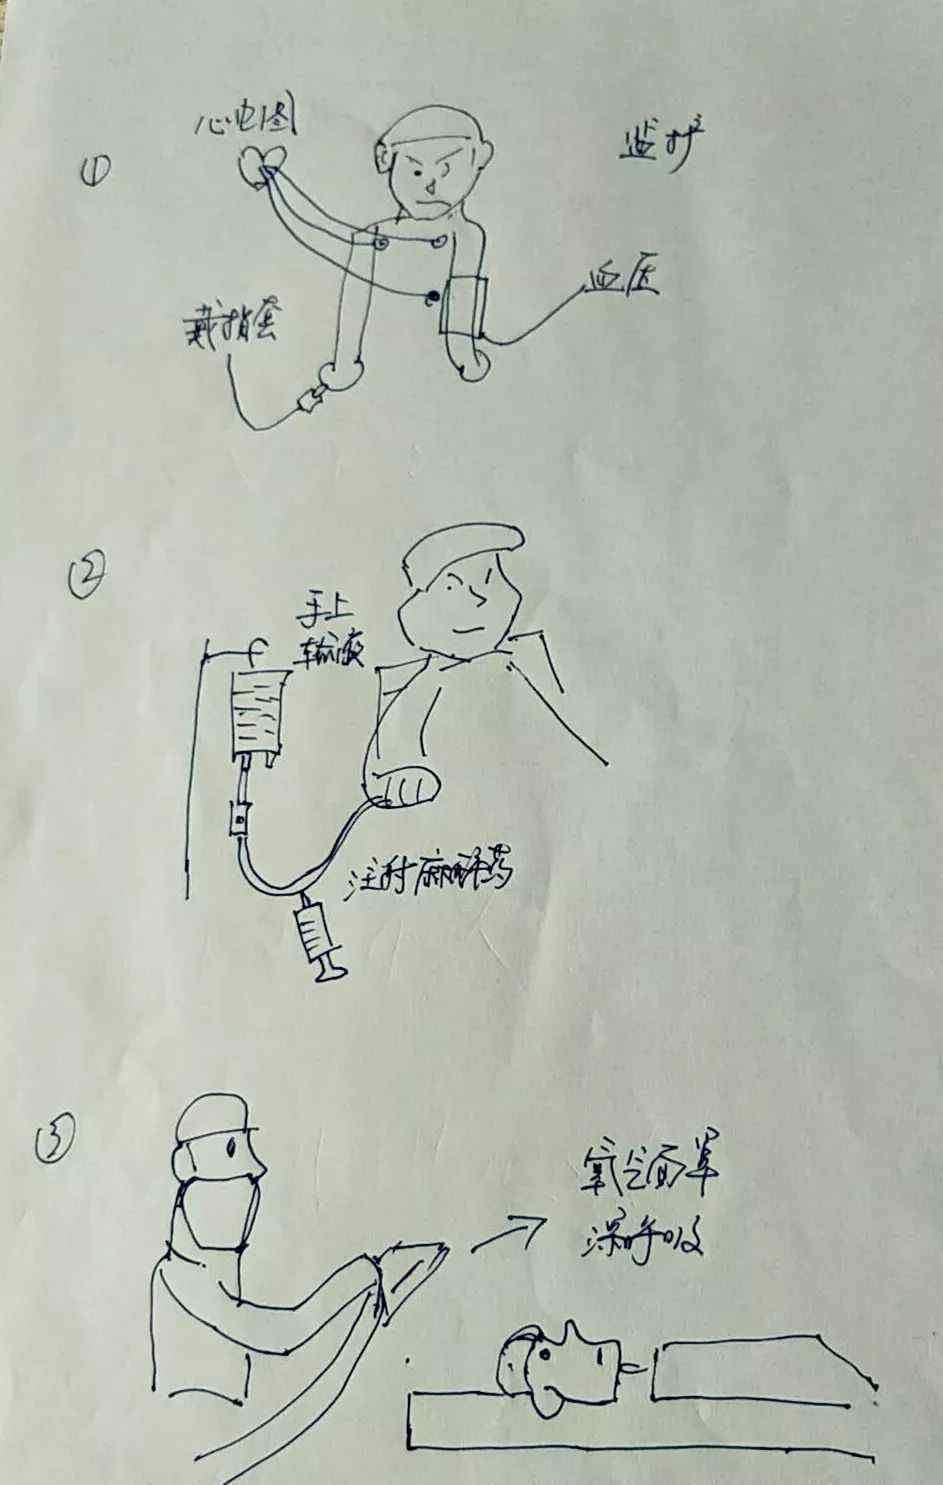 ①
心电图
监护
血压
戴指蛋
②
手上
输液
注射麻醉药
③
氧气面罩
深呼吸